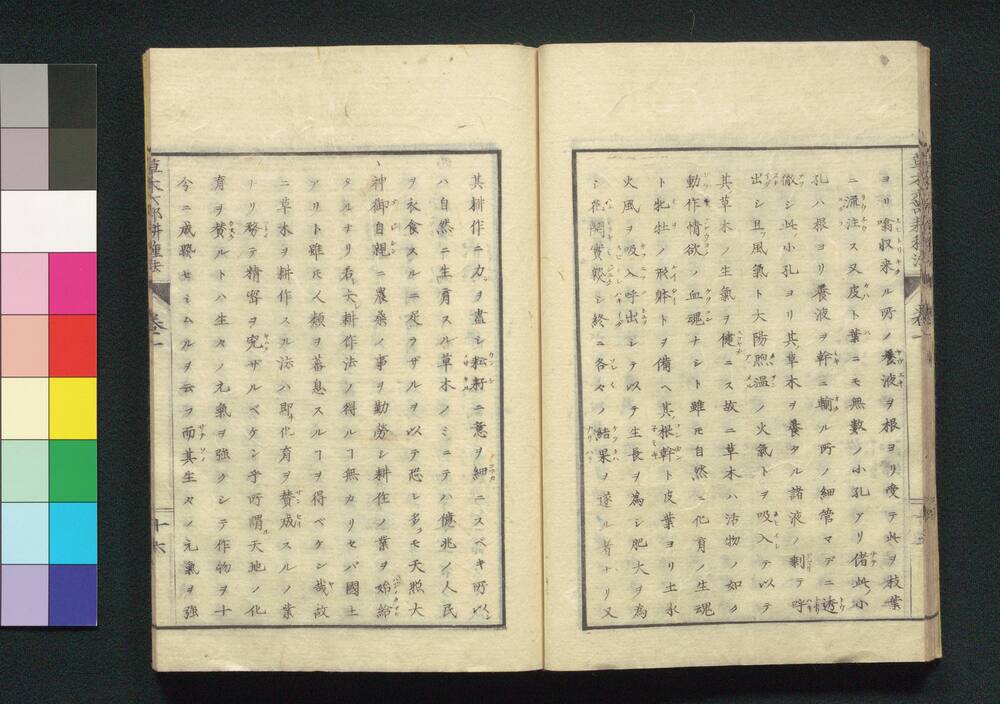 ヨリ噏収来ル所ノ養液ヲ根ヨリ受テ此ヲ枝葉
ニ流注ス又皮ト葉ニモ無數ノ小孔アリ偖此小
孔ハ根ヨリ養液ヲ幹ニ輸ル所ノ細管マデニ透
徹シ此小孔ヨリ其草木ヲ養タル諸液ノ剰テ呼
出シ且風氣ト大陽煦温ノ火氣トヲ吸入テ以テ
其草木ノ生氣ヲ健ニス故ニ草木ハ活物ノ如ク
動作情欲ノ血魂ナシト雖モ自然ニ化育ノ生魂
ト牝牡ノ形躰トヲ備ヘ其根幹ト皮葉ヨリ土水
火風ヲ吸入呼出シテ以テ生長ヲ為シ肥大ヲ為
シ花開實シ終ニ各々ノ結果ヲ遂ル者ナリ又
其耕作ニ力ヲ盡シ耘耔ニ意ヲ細ニスベキ所以
ハ自然ニ生育スル草木ノミニテハ億兆ノ人民
ヲ衣食スルニ足ラザルヲ以テ恐レ多クモ天照大
神御自親ニ農桑ノ事ヲ勤勞シ耕作ノ業ヲ始給
タルナリ若シ夫耕作法ノ得ルコ無カリセバ國土
アリト雖モ人類ヲ蕃息スルコヲ得ベケン哉故
ニ草木ヲ耕作スル法ハ即化育ヲ賛成スルノ業
ナリ務テ精密ヲ究ザルベケンヤ所謂天地ノ化
育ヲ賛ルトハ生々ノ元氣ヲ強クシテ作物ヲ十
分ニ成セシムルヲ云フ而其生々ノ元氣ヲ強
草木六部耕種法
卷一
十六